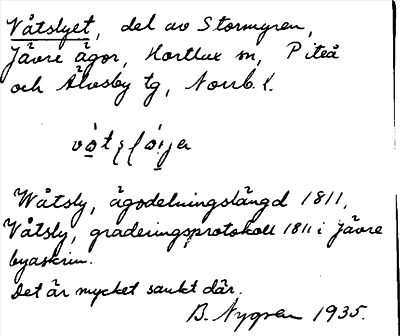 Våtslyet, del av Stormyren,
Jävre ägor, Hortlax sn, Piteå
och Älvsby tg, Norrb. l.
Wåtsly, ägodelningslängd 1811,
Våtsly, graderingsprotokoll 1811 i Jävre
byaskrin.
Det är mycket sankt där.
B. Nygren 1935.